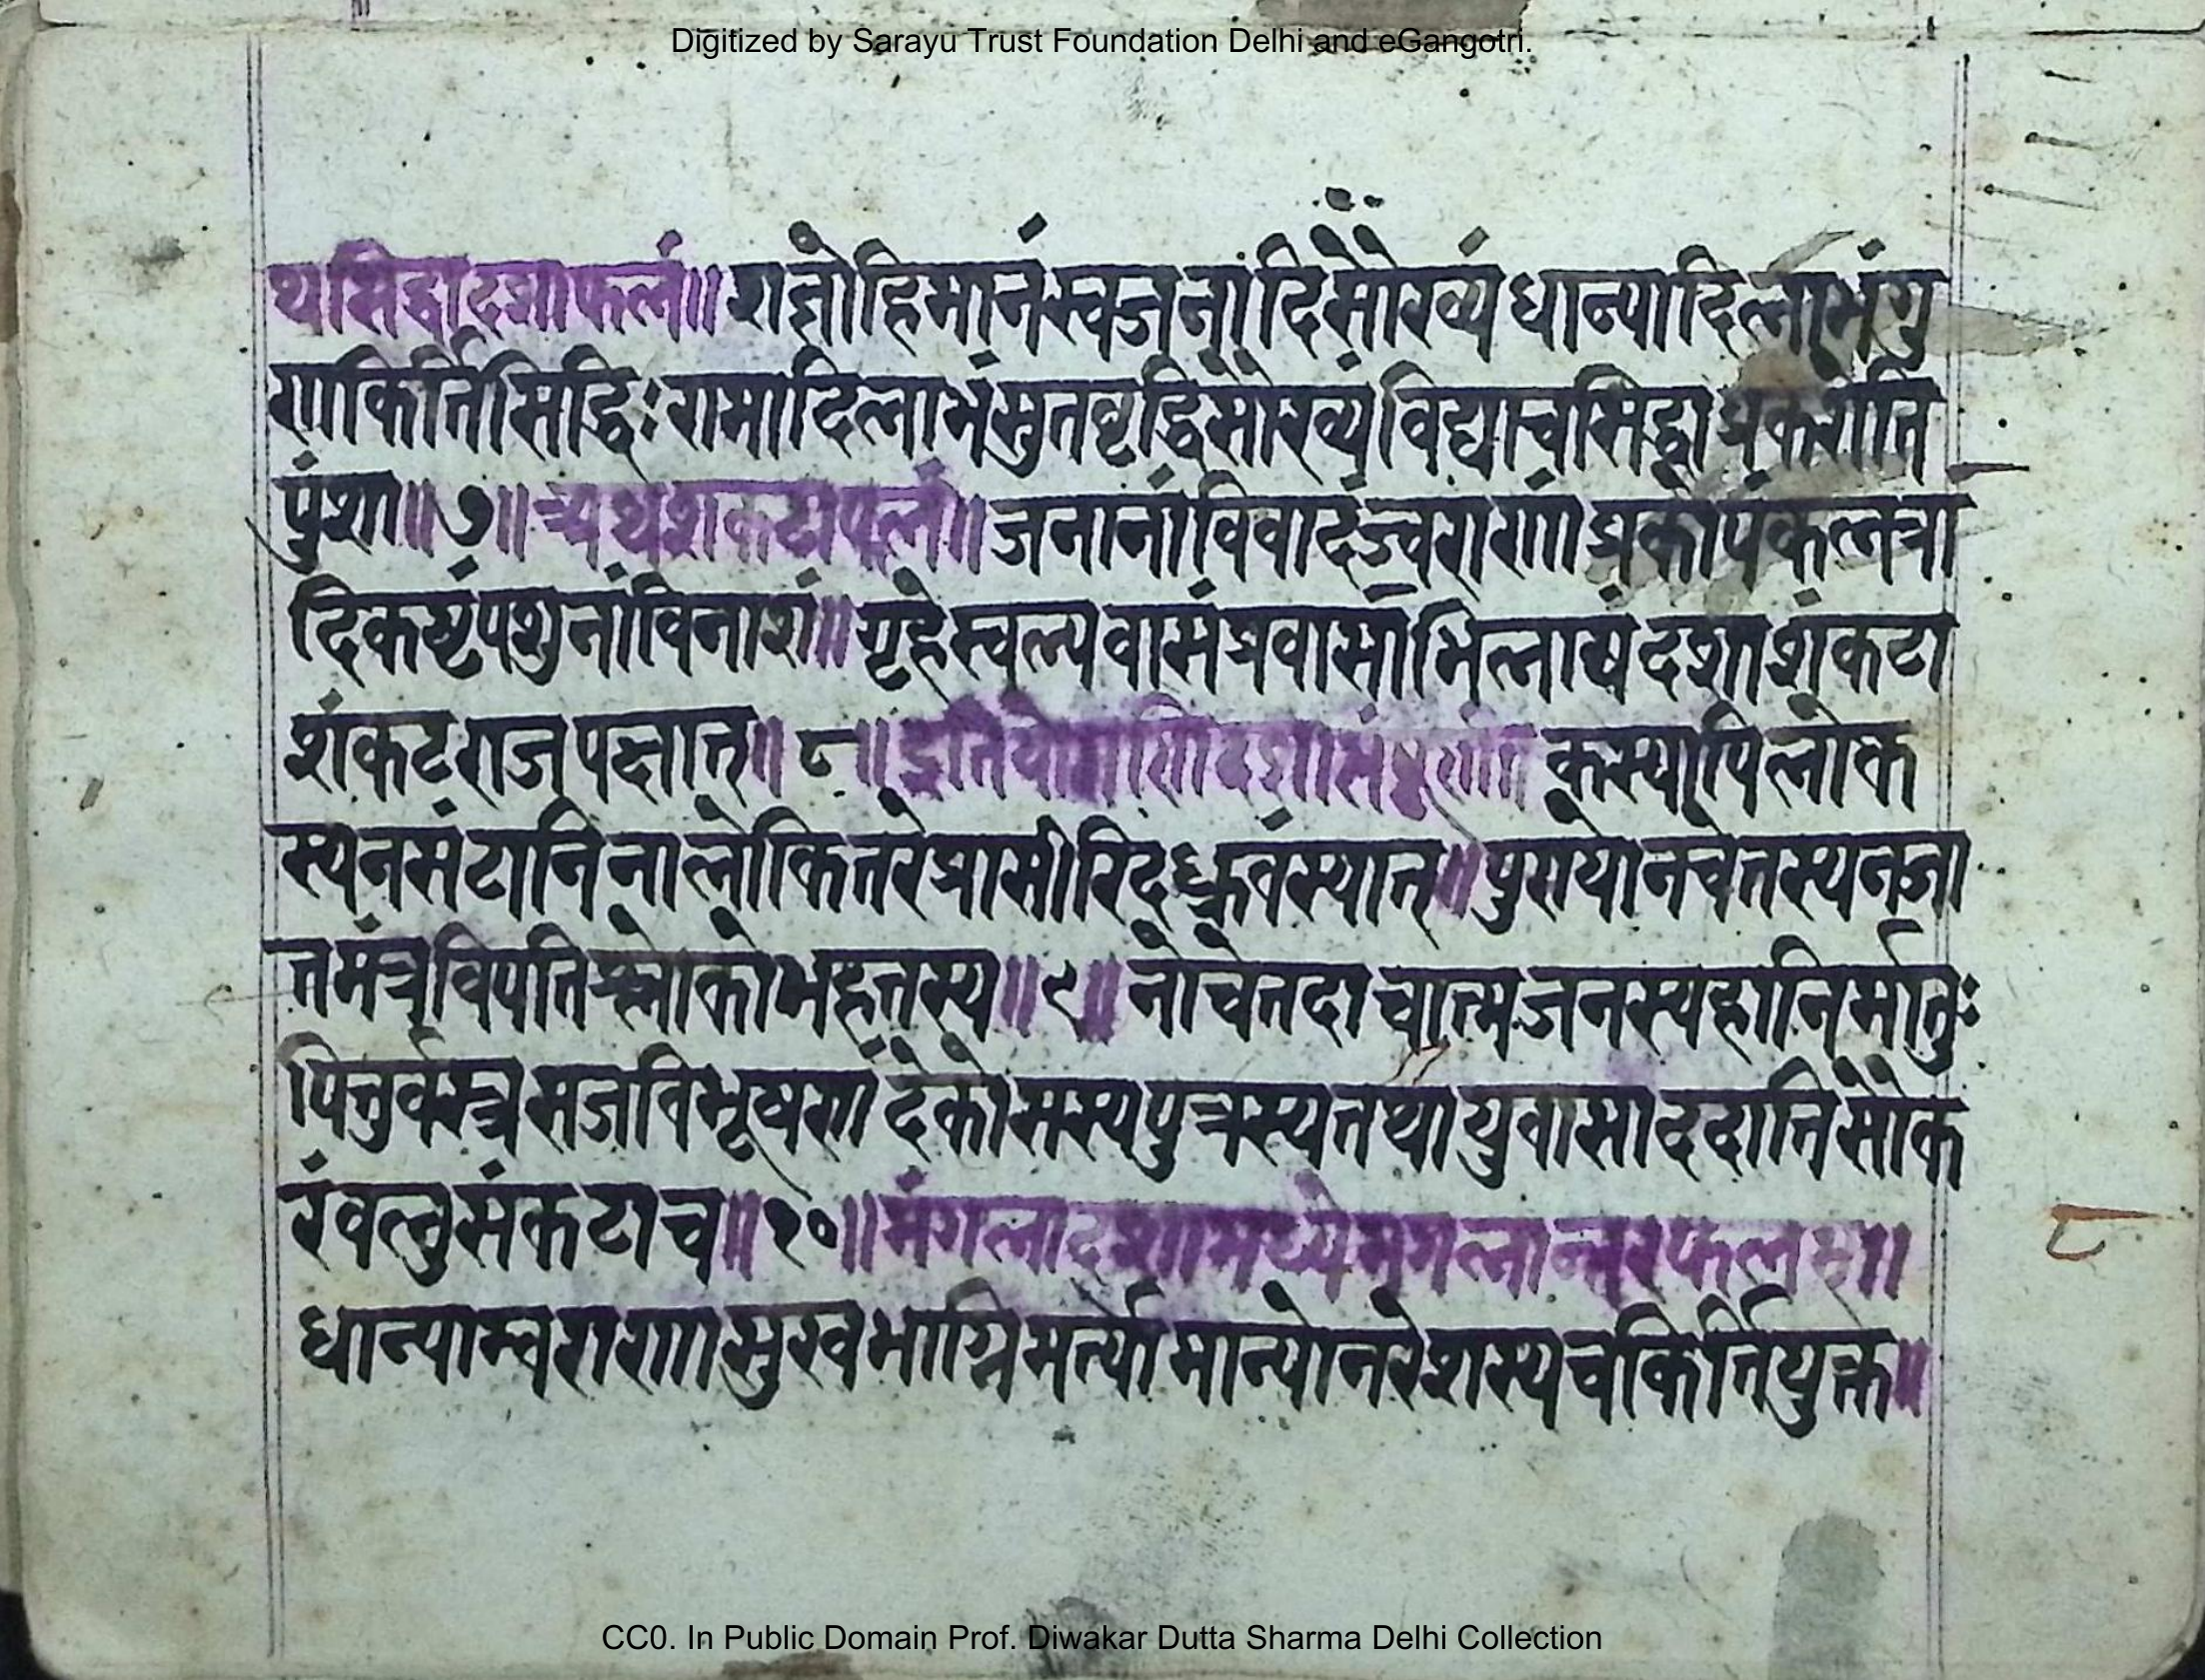 Digitized by Sarayu Trust Foundation Delhi and eGangotri.
थसिद्धादशाफलं॥ राज्ञोहिमानंस्वजनादिसौख्यं धान्यादिलाभंगु
णकिर्त्तिसिद्धिः रामादिलाभंसुतवृद्धिसौख्यंविद्याचसिद्धाप्रकरोति
पुंशा॥७॥ अथशकटाफलं॥ जनानांविवादंज्वराराणांप्रकोपंकलत्रा
दिकष्टंपशुनांविनाशं॥ गृहेस्वल्पवासंप्रवासाभिलाषंदशाशंकटा
शंकटराजपक्षात्॥८॥ इतियोगिणिदशासंपूर्णानि कस्यापिलोक
स्यनसंटानिनालोकितरेप्रासीरिद ध्रुवंस्यात्॥पुरायोनचेत्तस्यनजा
तमंत्रविपतिश्लोकोभहृत्तस्य॥९॥ नोचेतदाचात्मजनस्यहानिर्मातुः
पितुर्वस्त्रसजविभूषणं देकोसस्यपुत्रस्यतथायुवासाददातिसौक
रंवलुसंकटाच॥१०॥मंगलादशामध्येमंगलान्तरफलम्॥
धान्याम्वराराणसुखभाग्निमर्त्यो मान्योनरेशस्यचकिर्त्तियुक्त॥
८
CC0. In Public Domain Prof. Diwakar Dutta Sharma Delhi Collection